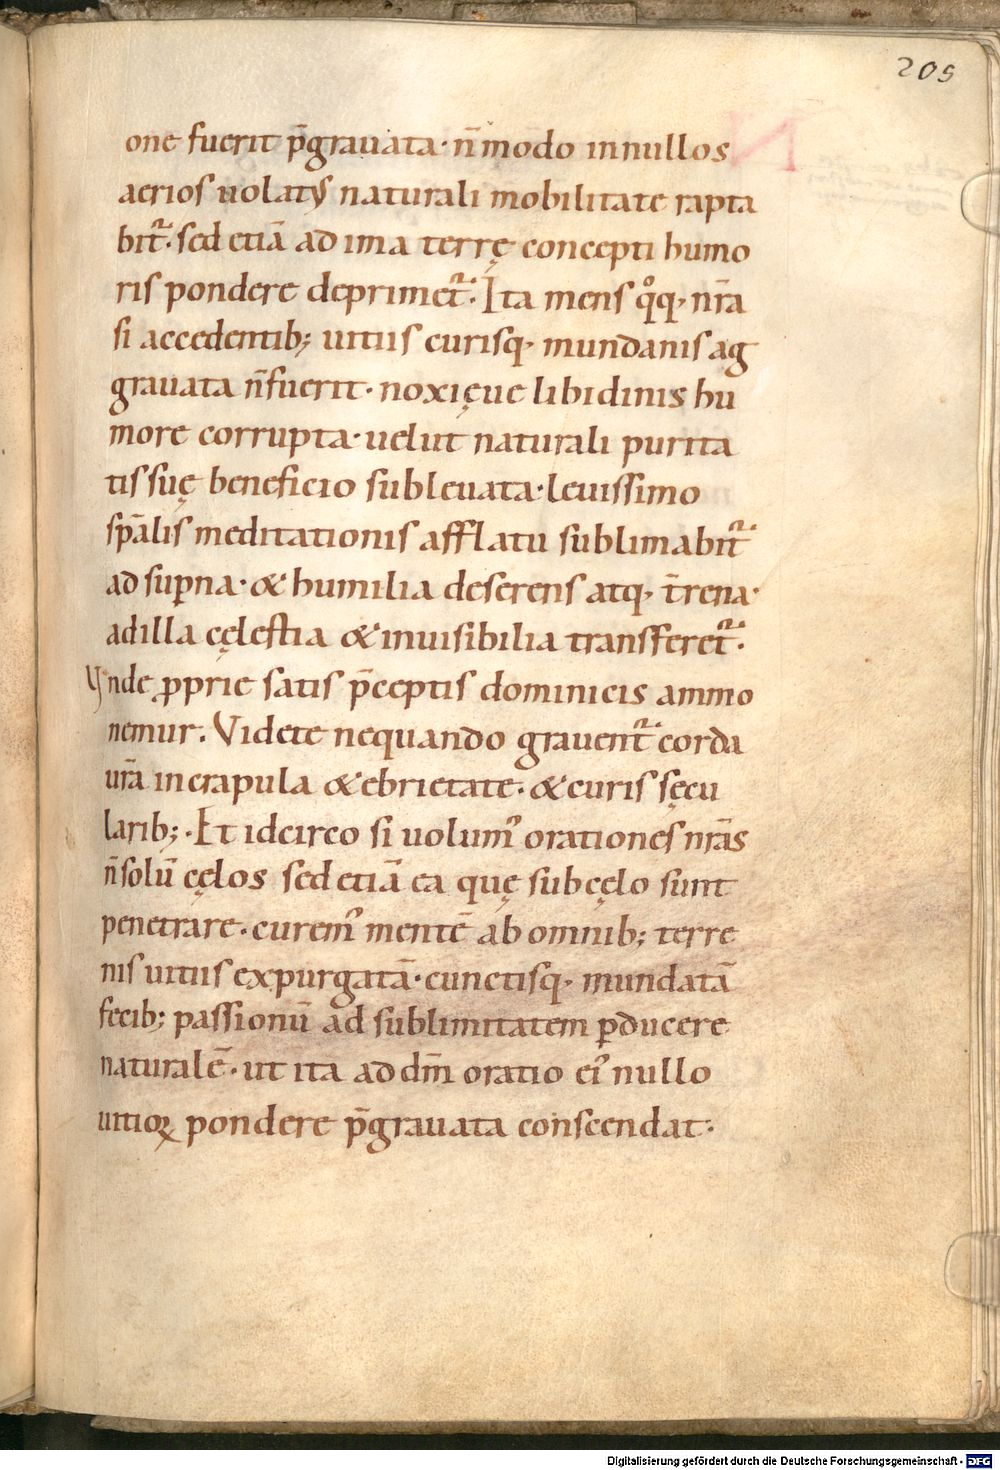 205
one fuerit p̄grauata· n̄ modo innullos
aerios uolatꝰ naturali mobilitate rapta
bit᷑· sed etiā ad ima terrę concepti humo
ris pondere deprimet᷑· Ita mens qͦq· nr̄a
si accedentib; uitiis curisq· mundanis ag
grauata n̄ fuerit· noxięue libidinis hu
more corrupta· uelut naturali purita
tis suę beneficio subleuata· leuissimo
sp̄alis meditationis afflatu sublimabit᷑
ad suꝑna· & humilia deserens atq· t̄rena·
ad illa cęlestia & inuisibilia transferet᷑·
Vnde ꝓprie satis p̄ceptis dominicis ammo
nemur. Videte nequando grauent᷑ corda
ur̄a in crapula & ebrietate· & curis sęcu
larib;· Et idcirco si uolumꝰ orationes nr̄as
n̄ solū cęlos sed etiā ea quę sub cęlo sunt
penetrare· curemꝰ mentē ab omnib; terre
nis uitiis expurgatā· cunctisq· mundatā
fecib; passionū ad sublimitatem ꝑducere
naturalē· ut ita ad dm̄ oratio eiꝰ nullo
uitioꝝ pondere p̄grauata conscendat·
Digitalisierung gefördert durch die Deutsche Forschungsgemeinschaft - DFG